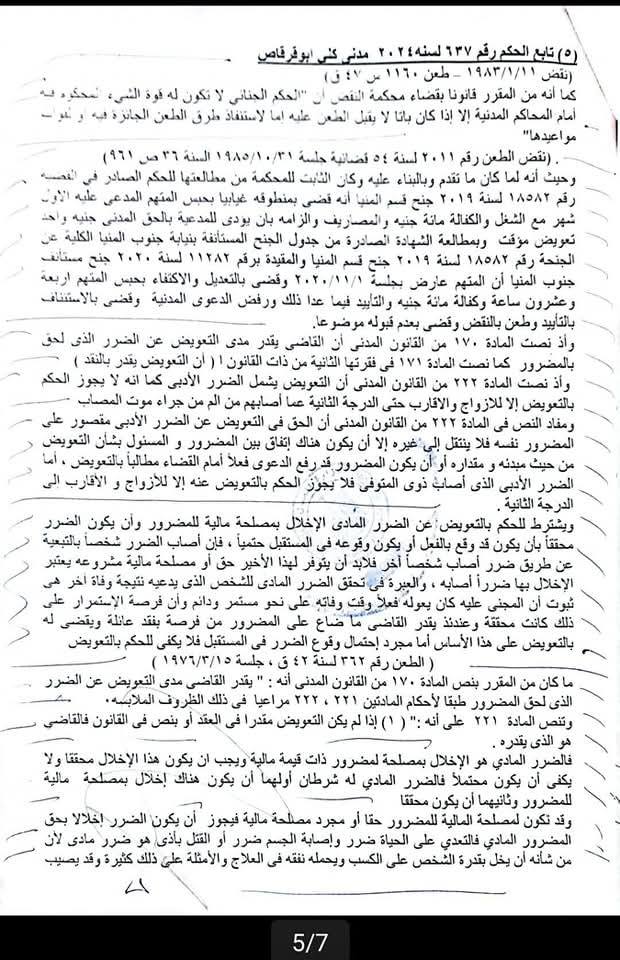 (٥) تابع الحكم رقم ٦٣٧ لسنه ٢٠٢٤ مدنى كلى ابوقرقاص
(نقض ١٩٨٣/١/١١ – طعن ١١٦٠ س ٤٧ ق)
كما أنه من المقرر قانونا بقضاء محكمة النقض أن "الحكم الجنائي لا تكون له قوة الشيء المحكوم فيه
أمام المحاكم المدنية إلا إذا كان باتا لا يقبل الطعن عليه إما لاستنفاذ طرق الطعن الجائزة فيه او لفوات
مواعيدها"
. (نقض الطعن رقم ٢٠١١ لسنة ٥٤ قضائية جلسة ١٩٨٥/١٠/٣١ السنة ٣٦ ص ٩٦١)
وحيث أنه لما كان ما تقدم وبالبناء عليه وكان الثابت للمحكمة من مطالعتها للحكم الصادر في القضية
رقم ١٨٥٨٢ لسنة ٢٠١٩ جنح قسم المنيا أنه قضى بمنطوقه غيابيا بحبس المتهم المدعى عليه الاول
شهر مع الشغل والكفالة مائة جنيه والمصاريف والزامه بان يودى للمدعية بالحق المدنى جنيه واحد
تعويض مؤقت وبمطالعة الشهادة الصادرة من جدول الجنح المستأنفة بنيابة جنوب المنيا الكلية عن
الجنحة رقم ١٨٥٨٢ لسنة ٢٠١٩ جنح قسم المنيا والمقيدة برقم ١١٢٨٢ لسنة ٢٠٢٠ جنح مستأنف
جنوب المنيا أن المتهم عارض بجلسة ٢٠٢٠/١١/١ وقضى بالتعديل والاكتفاء بحبس المتهم اربعة
وعشرون ساعة وكفالة مائة جنيه والتأييد فيما عدا ذلك ورفض الدعوى المدنية وقضى بالاستئناف
بالتأييد وطعن بالنقض وقضى بعدم قبوله موضوعا.
وأذ نصت المادة ١٧٠ من القانون المدني أن القاضي يقدر مدى التعويض عن الضرر الذى لحق
بالمضرور كما نصت المادة ١٧١ فى فقرتها الثانية من ذات القانون ا ( أن التعويض يقدر بالنقد )
وأذ نصت المادة ٢٢٢ من القانون المدنى أن التعويض يشمل الضرر الأدبى كما انه لا يجوز الحكم
بالتعويض إلا للازواج والاقارب حتى الدرجة الثانية عما أصابهم من الم من جراء موت المصاب
ومفاد النص فى المادة ٢٢٢ من القانون المدنى أن الحق فى التعويض عن الضرر الأدبى مقصور على
المضرور نفسه فلا ينتقل إلى غيره إلا أن يكون هناك إتفاق بين المضرور و المسئول بشأن التعويض
من حيث مبدئه و مقداره أو أن يكون المضرور قد رفع الدعوى فعلاً أمام القضاء مطالباً بالتعويض ، أما
الضرر الأدبى الذى أصاب ذوى المتوفى فلا يجوز الحكم بالتعويض عنه إلا للأزواج و الأقارب إلى
الدرجة الثانية .
ويشترط للحكم بالتعويض عن الضرر المادى الإخلال بمصلحة مالية للمضرور وأن يكون الضرر
محققاً بأن يكون قد وقع بالفعل أو يكون وقوعه فى المستقبل حتمياً ، فإن أصاب الضرر شخصاً بالتبعية
عن طريق ضرر أصاب شخصاً آخر فلابد أن يتوفر لهذا الأخير حق أو مصلحة مالية مشروعه يعتبر
الإخلال بها ضرراً أصابه ، والعبرة فى تحقق الضرر المادى للشخص الذى يدعيه نتيجة وفاة آخر هى
ثبوت أن المجنى عليه كان يعوله فعلاً وقت وفاته على نحو مستمر ودائم وأن فرصة الإستمرار على
ذلك كانت محققة وعندئذ يقدر القاضى ما ضاع على المضرور من فرصة بفقد عائلة ويقضى له
بالتعويض على هذا الأساس أما مجرد إحتمال وقوع الضرر فى المستقبل فلا يكفى للحكم بالتعويض
( الطعن رقم ٣٦٢ لسنة ٤٢ ق ، جلسة ١٩٧٦/٣/١٥ )
ما كان من المقرر بنص المادة ١٧٠ من القانون المدنى أنه : " يقدر القاضى مدى التعويض عن الضرر
الذى لحق المضرور طبقا لأحكام المادتين ٢٢١ ، ٢٢٢ مراعيا فى ذلك الظروف الملابسه٠
وتنص المادة ٢٢١ على أنه :" (١) إذا لم يكن التعويض مقدرا فى العقد أو بنص فى القانون فالقاضي
هو الذى يقدره .
فالضرر المادي هو الإخلال بمصلحة لمضرور ذات قيمة مالية ويجب ان يكون هذا الإخلال محققا ولا
يكفى أن يكون محتملاً فالضرر المادي له شرطان أولهما أن يكون هناك إخلال بمصلحة مالية
للمضرور وثانيهما أن يكون محققا
وقد تكون لمصلحة المالية للمضرور حقا أو مجرد مصلحة مالية فيجوز أن يكون الضرر إخلالا بحق
المضرور المادي فالتعدي على الحياة ضرر وإصابة الجسم ضرر أو القتل بأذى هو ضرر مادى لأن
من شأنه أن يخل بقدرة الشخص على الكسب ويحمله نفقه فى العلاج والأمثلة على ذلك كثيرة وقد يصيب
5/7